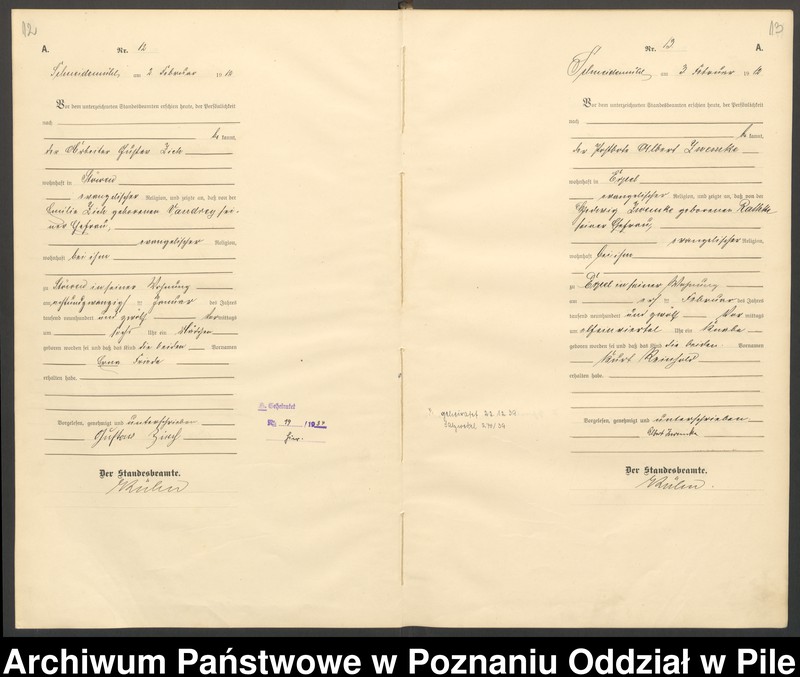 12
A.
Nr. 12
Schneidemühl, am 2 Februar 19 12
Vor dem unterzeichneten Standesbeamten erschien heute, der Persönlichkeit
nach
be kannt,
der Arbeiter Gustav Zich
wohnhaft in Stöwen
evangelischer Religion, und zeigte an, daß von der
Emilie Zich geborenen Vandrey sei-
ner Ehefrau,
evangelischer Religion,
wohnhaft bei ihm
zu Stöwen in seiner Wohnung
am achtundzwanzigsten Januar des Jahres
tausend neunhundert und zwölf vormittags
um sechs Uhr ein Mädchen
geboren worden sei und daß das Kind die beiden Vornamen
Erna Frieda
erhalten habe.
Vorgelesen, genehmigt und unterschrieben
Gustav Zich
Der Standesbeamte.
Kühn
19
13
Nr. 13
A.
Schneidemühl, am 3 Februar 19 12
Vor dem unterzeichneten Standesbeamten erschien heute, der Persönlichkeit
nach
be kannt,
der Postbote Albert Zwemke
wohnhaft in Erpel
evangelischer Religion, und zeigte an, daß von der
Hedwig Zwemke geborenen Radtke
seiner Ehefrau,
evangelischer Religion,
wohnhaft bei ihm
zu Erpel in seiner Wohnung
am ersten Februar des Jahres
tausend neunhundert und zwölf Vor mittags
um Uhr ein Knabe
geboren worden sei und daß das Kind die beiden Vornamen
Kurt Reinhold
erhalten habe.
geheiratet 22.12.39
Vorgelesen, genehmigt und unterschrieben
Albert Zwemke
Der Standesbeamte.
Kühn.
Archiwum Państwowe w Poznaniu Oddział w Pile